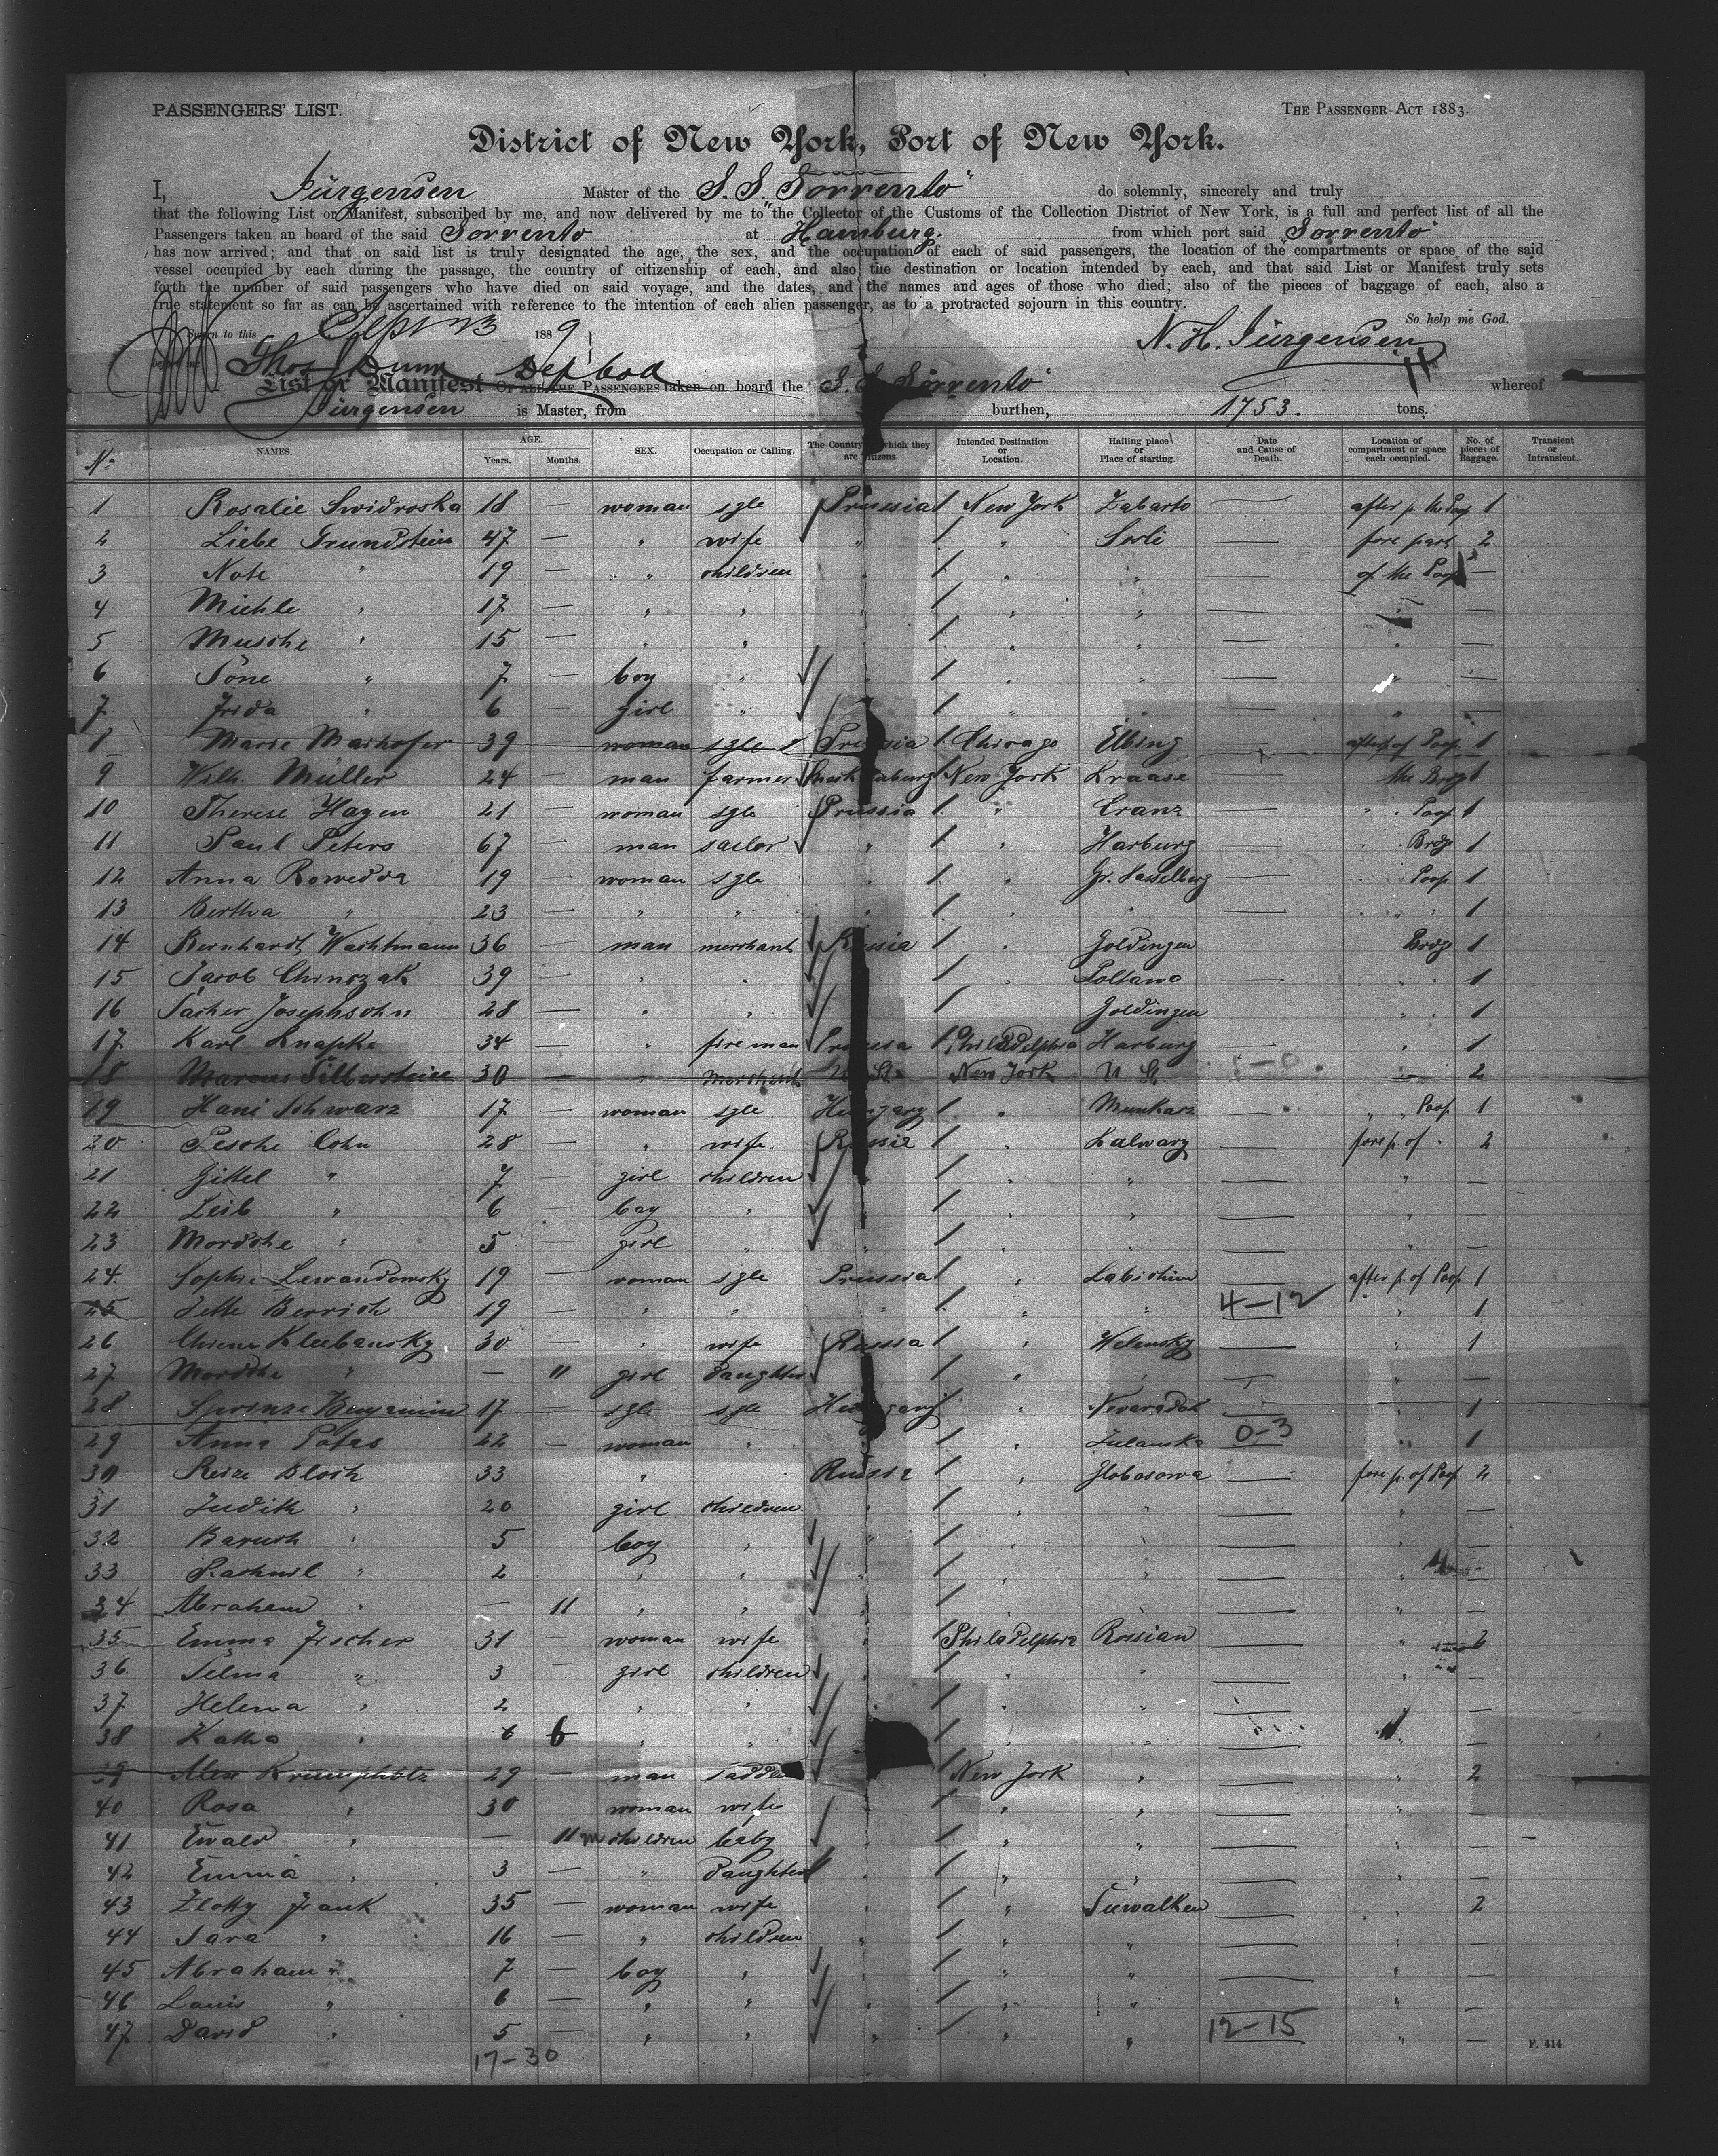 PASSENGERS' LIST.
THE PASSENGER ACT 1883.
District of New York, Port of New York.
I, Jürgensen Master of the S. S. "Sorrento" do solemnly, sincerely and truly
that the following List or Manifest, subscribed by me, and now delivered by me to the Collector of the Customs of the Collection District of New York, is a full and perfect list of all the
Passengers taken on board of the said Sorrento at Hamburg. from which port said "Sorrento"
has now arrived; and that on said list is truly designated the age, the sex, and the occupation of each of said passengers, the location of the compartments or space of the said
vessel occupied by each during the passage, the country of citizenship of each, and also the destination or location intended by each, and that said List or Manifest truly sets
forth the number of said passengers who have died on said voyage, and the dates, and the names and ages of those who died; also of the pieces of baggage of each, also a
true statement so far as can be ascertained with reference to the intention of each alien passenger, as to a protracted sojourn in this country.
So help me God.
Sworn to this 1889
N. H. Jürgensen
List or Manifest OF ALL THE PASSENGERS taken on board the S. S. Sorrento whereof
Jürgensen is Master, from burthen, 1753. tons.
No. NAMES. AGE. Years. Months. SEX. Occupation or Calling. The Country of which they are citizens Intended Destination or Location. Hailing place or Place of starting. Date and Cause of Death. Location of compartment or space each occupied. No. of pieces of Baggage. Transient or Intransient.
1 Rosalie Swidroska 18 — woman sgle Prussia New York Zabarto — after p. the Poop 1
2 Liebe Grundstein 47 — " wife " " Sorli — fore part 2
3 Note " 19 — " children " " — of the Poop —
4 Michle " 17 — " " " " " — " —
5 Musche " 15 — " " " " — " —
6 Töne " 7 — boy " " " — " —
7 Frida " 6 — girl " " " — " —
8 Marie Maihofer 39 — woman sgle Prussia Chicago Elbing — after p. of Poop 1
9 Wilh. Müller 24 — man farmer Mecklenburg New York Kraase — the Brdg 1
10 Therese Hagen 21 — woman sgle Prussia " Cranz — " Poop 1
11 Paul Peters 67 — man sailor " " Harburg — " Brdg 1
12 Anna Rowedda 19 — woman sgle " " Gr. Kasselberg — " Poop 1
13 Bertha " 23 — " " " " " — " 1
14 Bernhardt Wachtmann 36 — man merchant Russia " Goldingen Brdg 1
15 Jacob Chinszak 39 — " " Poltawa — " 1
16 Sacher Josephsohn 28 — " " Goldingen — " 1
17 Karl Knapke 34 — " fireman Prussia Philadelphia Harburg " 1
18 Marcus Silberstein 30 — " Merchant U. St. New York U. St. — 2
19 Hani Schwarz 17 — woman sgle Hungary " Munkacz — " " Poop 1
20 Pesche Cohn 28 — " wife Russia " Kalwary — fore p. of " 2
21 Gittel " 7 — girl children " " — " —
22 Leib " 6 — boy " " " — " —
23 Mordche " 5 — girl " " " — " —
24 Sophie Lewandowsky 19 — woman sgle Prussia " Labischin — after p. of Poop 1
25 Jette Berrich 19 — " " " " " 4-12 " 1
26 Chiene Kleebansky 30 — " wife Russia " Welensky — " 1
27 Mordche " — 11 girl daughter " " — " —
28 Benjamin 17 — sgle sgle Hungary " — " 1
29 Anna Potas 22 — woman " " Zulanska 0-3 " 1
30 Reize Bloch 33 — " Russia " Globosowa — fore p. of Poop 2
31 Judith " 20 girl children " " — " —
32 Baruch " 5 boy " " " — " —
33 " 2 " " " " — " —
34 Abraham " — 11 " " " " — " —
35 Emma Fischer 31 woman wife " Philadelphia Rossian — " 2
36 Selma " 3 — girl children " " — " —
37 Helena " 2 " " " " — " —
38 Katha " 6 6 " " " — " —
39 Alex Krumpholtz 29 — man saddler New York " — " 2
40 Rosa " 30 woman wife " " — " —
41 Ewald " — 11 m children baby " " — " —
42 Emma " 3 — " daughter " " — " —
43 Zlotty Frank 35 — woman wife " " Suwalken — " 2
44 Sara " 16 — " children " " " — " —
45 Abraham " 7 — boy " " " — " —
46 Louis " 6 — " " " " " — " —
47 David " 5 — " " " " " 12-15 " —
17-30
F. 414